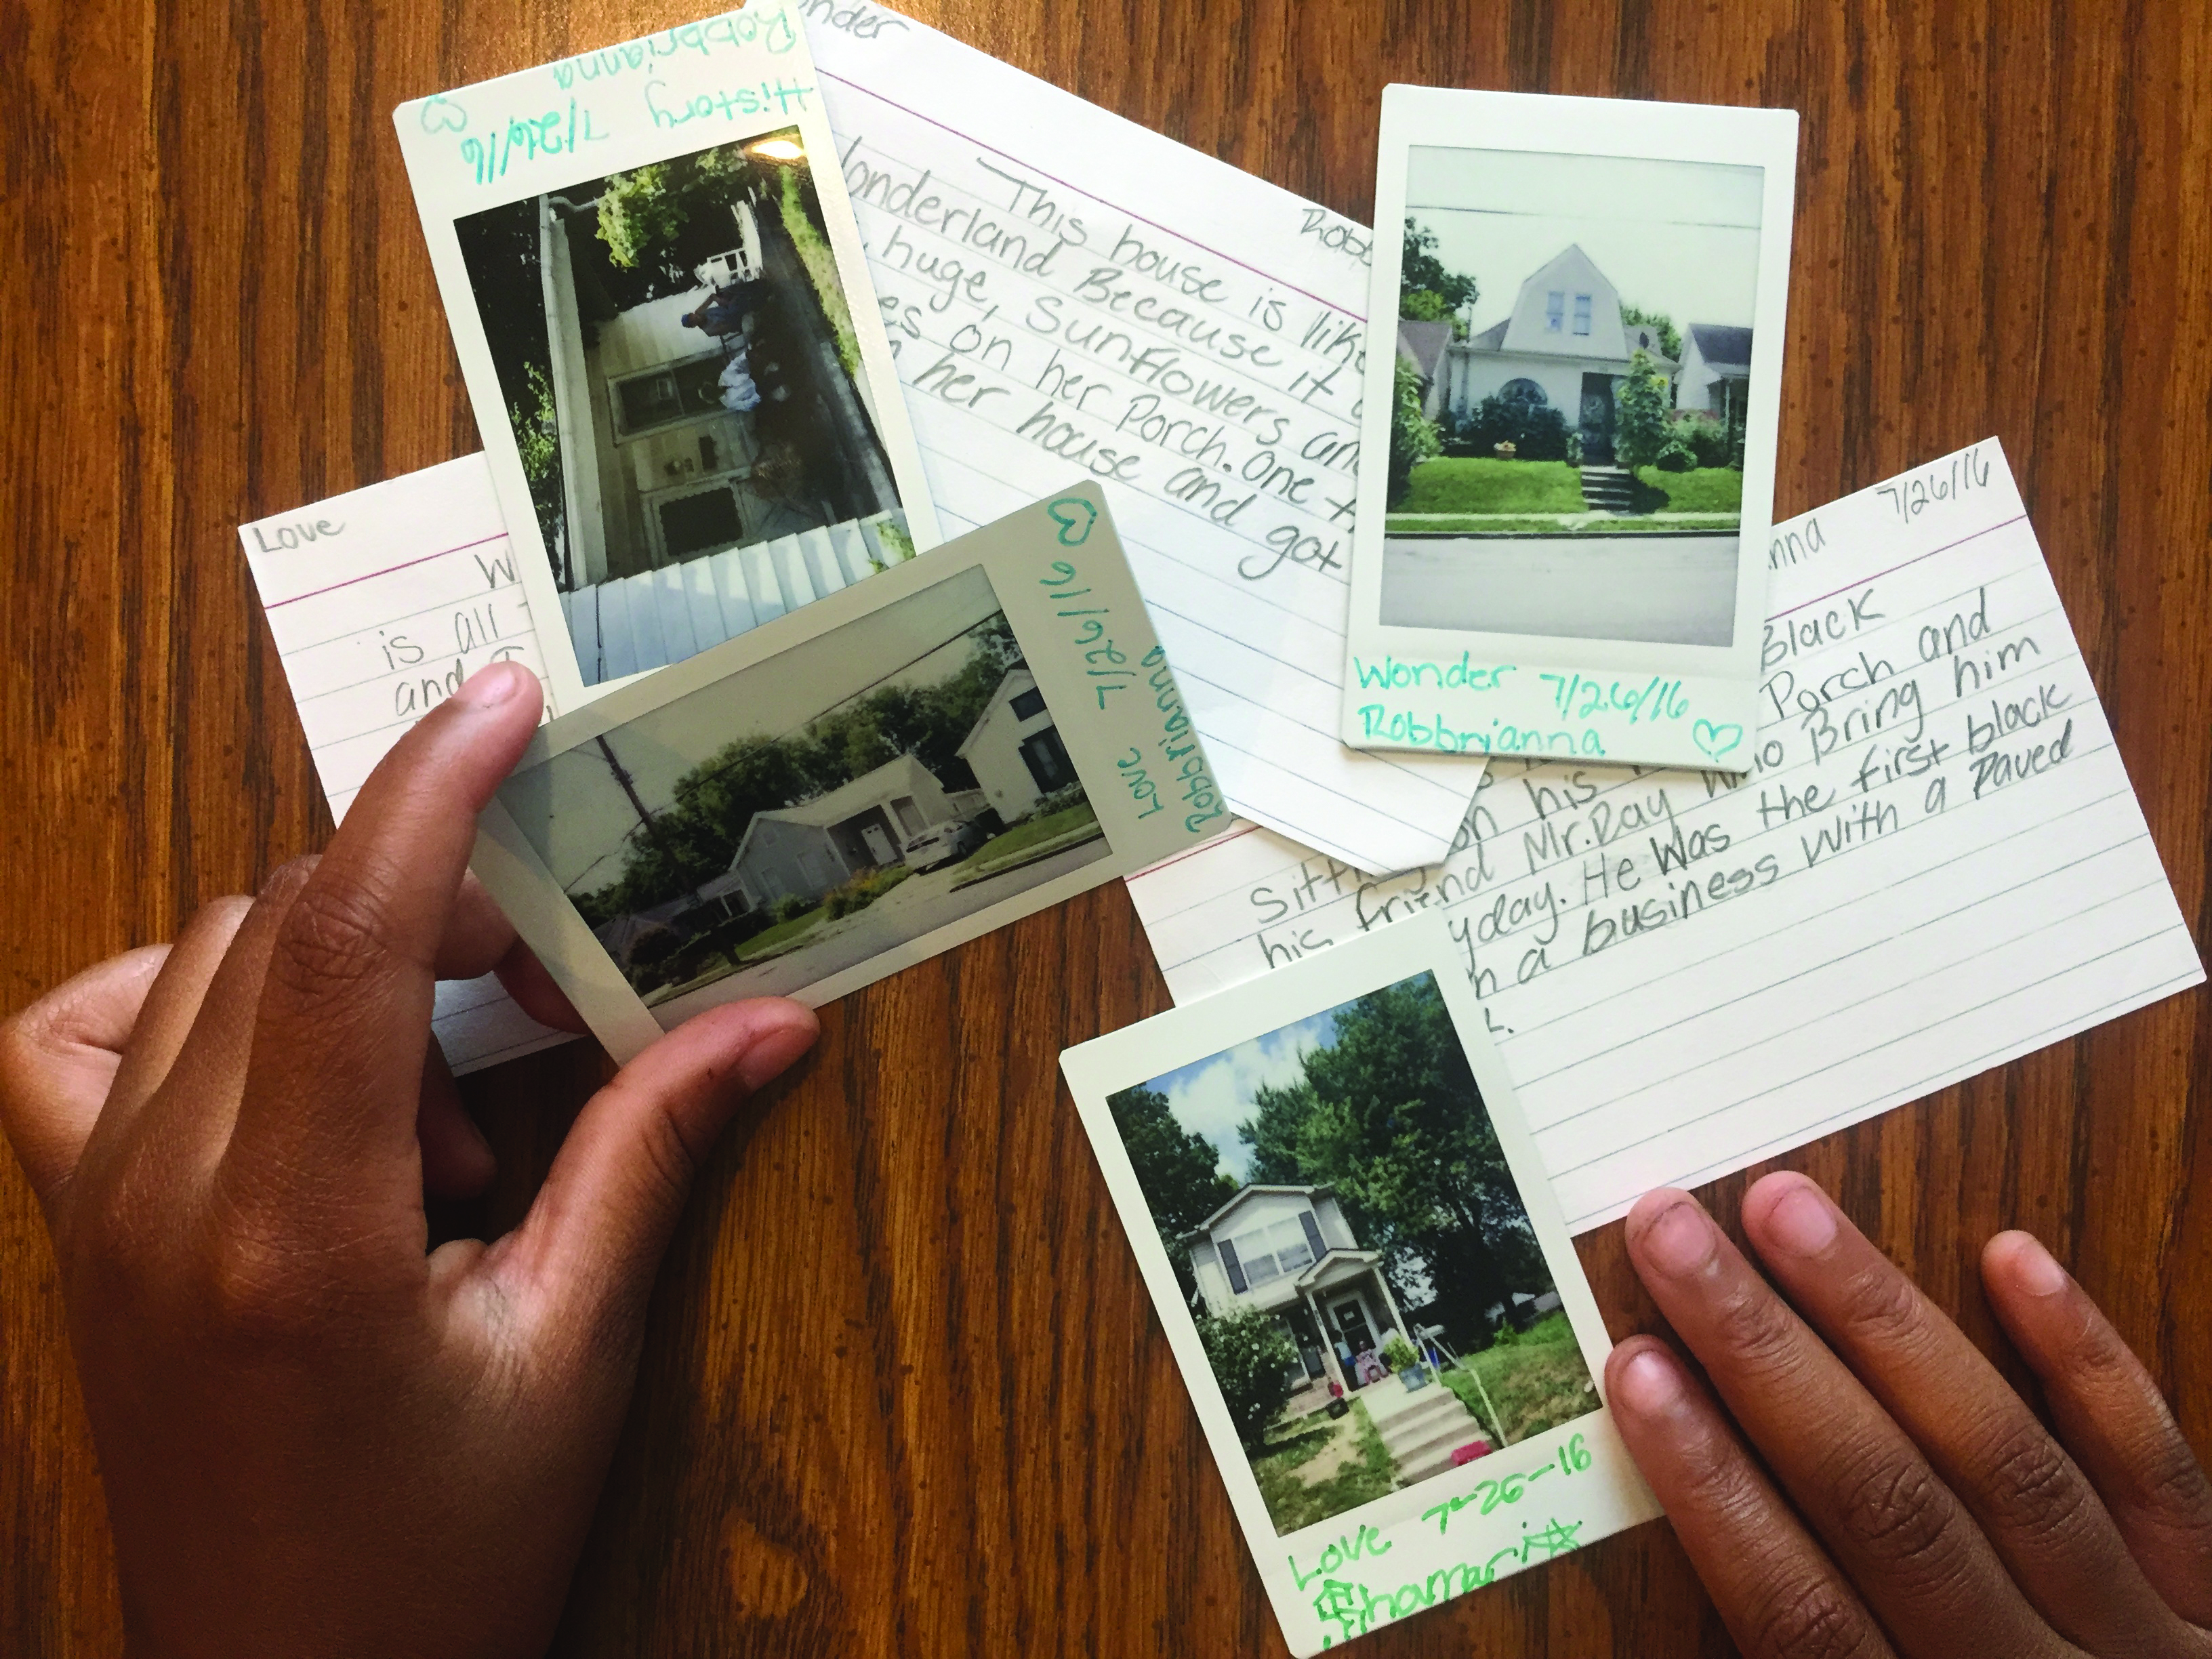 History 7/26/16
Robbrianna ♡
onder
Robb
This house is lik
onderland Because it
huge, Sunflowers an
es on her Porch. One t
her house and got
Wonder 7/26/16
Robbrianna ♡
Love
W
is all
and I
Love 7/26/16 ♡
Robbrianna
nna 7/26/16
Black
Sitti on his Porch and
his friend Mr.Ray who Bring him
yday. He Was the first black
n a business With a Paved
L.
Love 7-26-16
Shamari☆